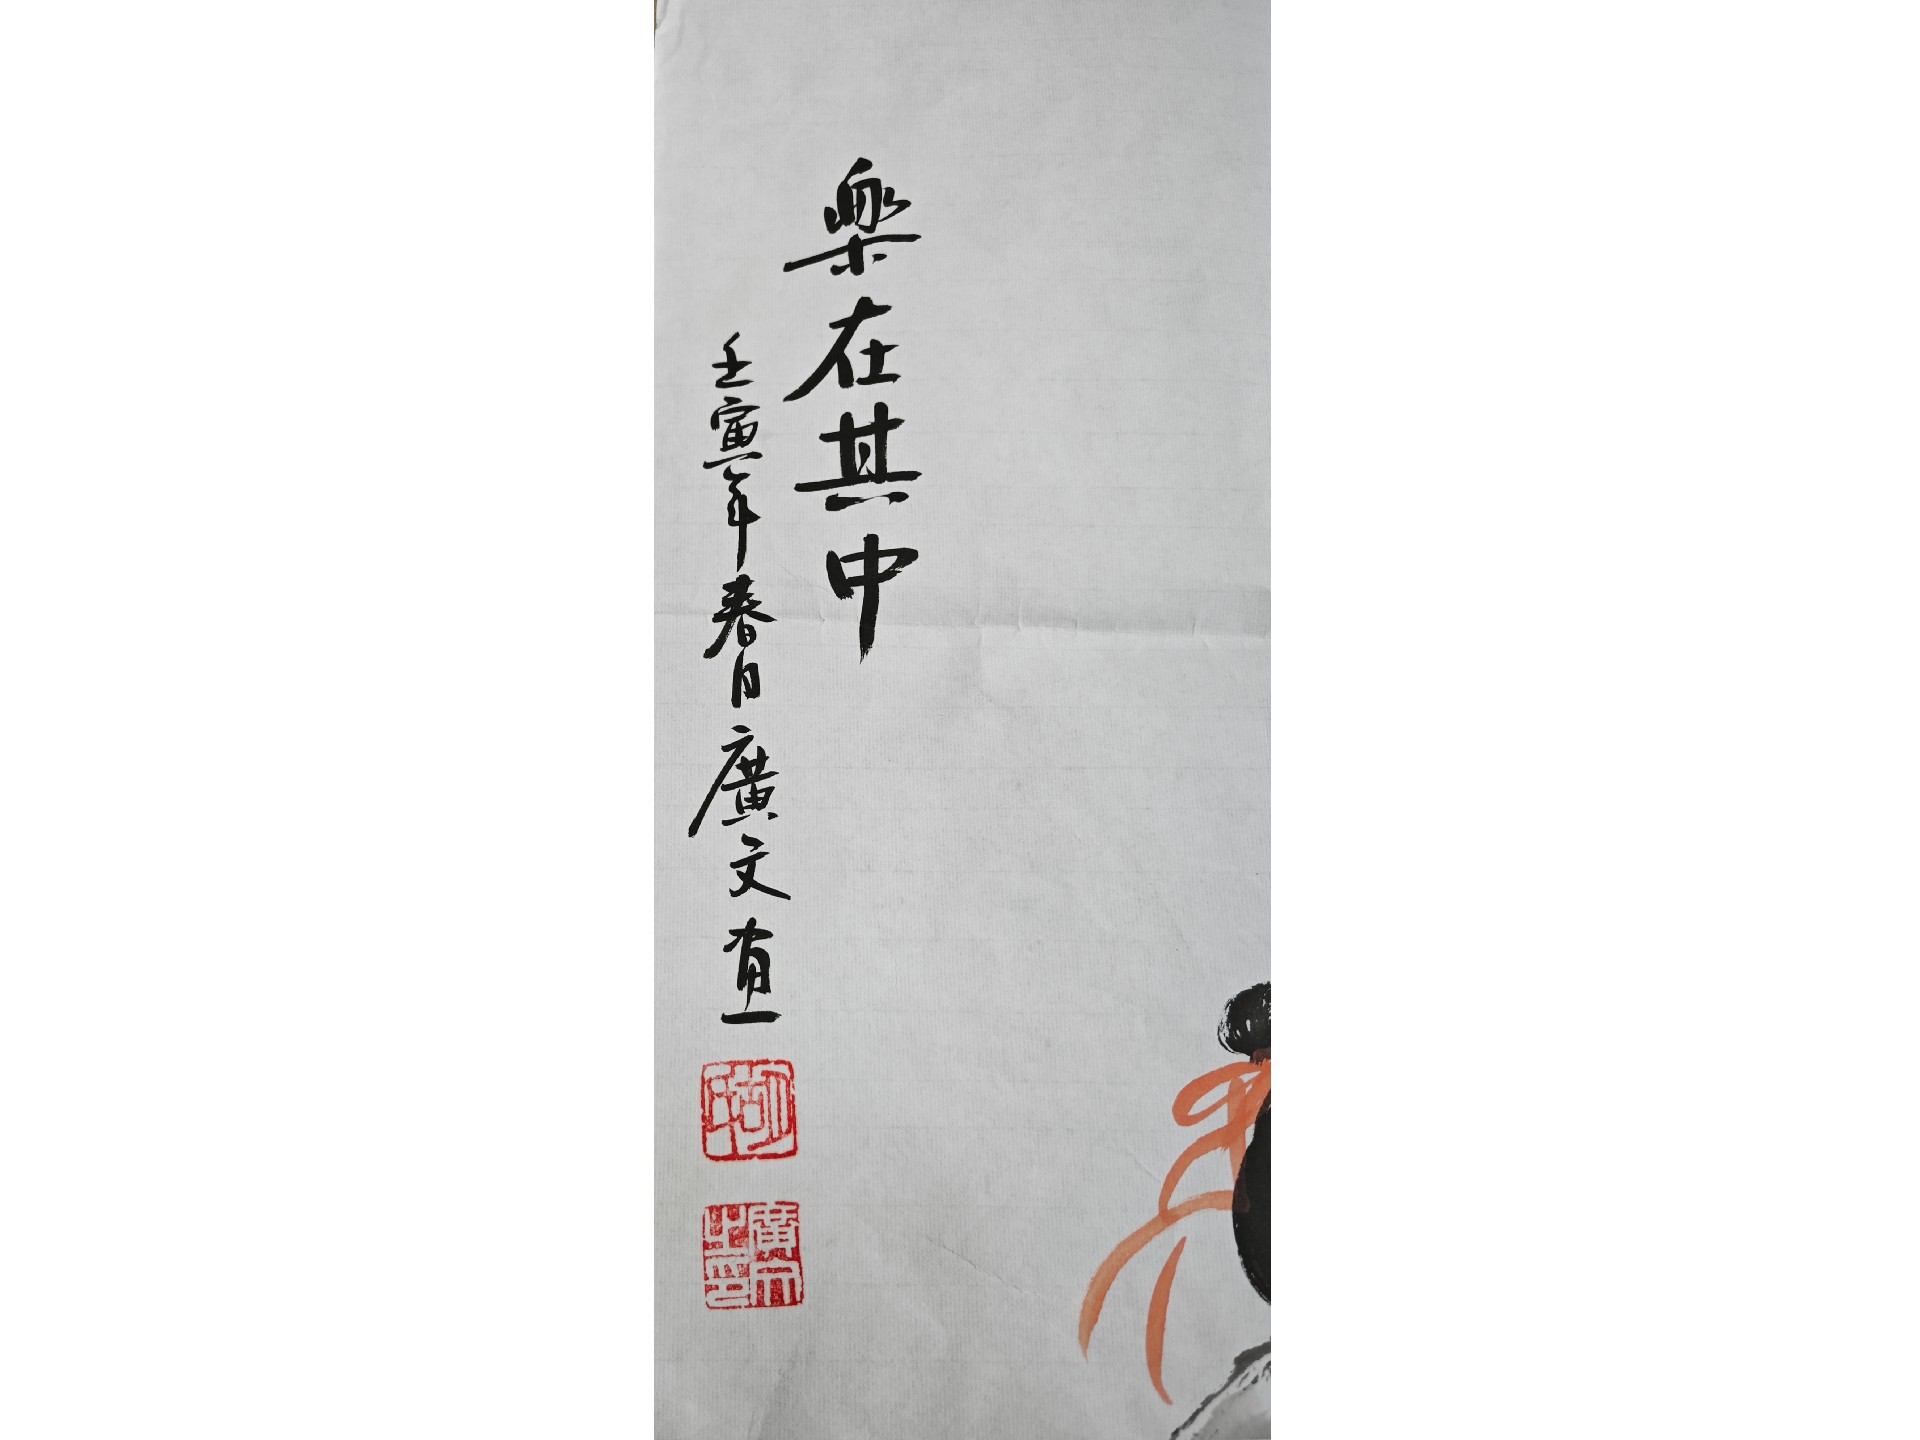 樂在其中
壬寅年春月廣文畫
廣文之印